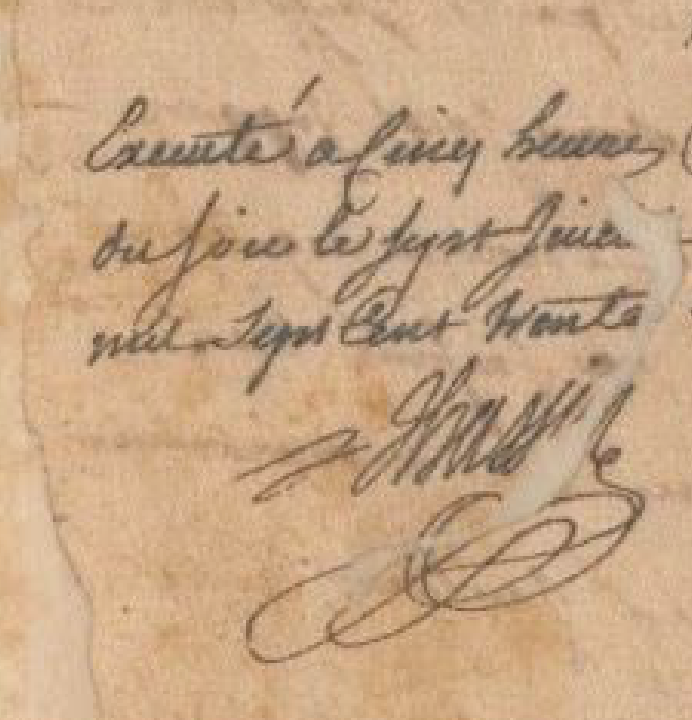 Executé a Cinq heures
du soir le sept
mil Sept Cent trente